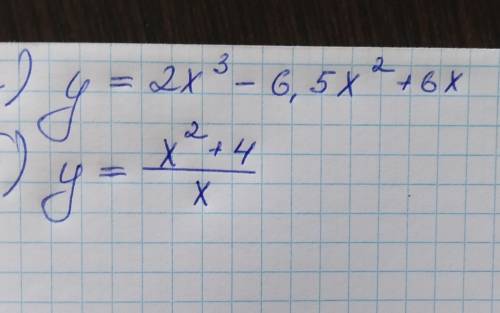 ) y = 2x³ - 6,5x² + 6x
) y = (x² + 4)/x